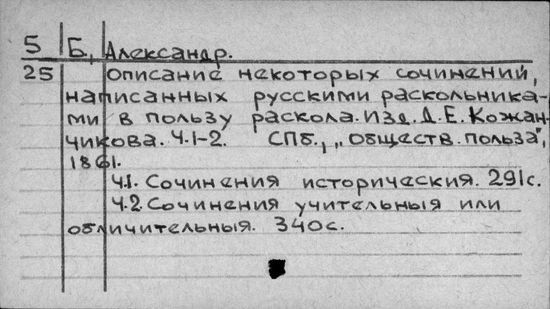 5 Б, Александр.
25 Описание некоторых сочинений,
написанных русскими раскольника-
ми в пользу раскола. Изд. Д.Е. Кожан-
чикова. Ч.1-2. СПб., „Обществ. польза",
1861.
Ч.1. Сочинения историческия. 291с.
Ч.2. Сочинения учительныя или
обличительныя. 340с.